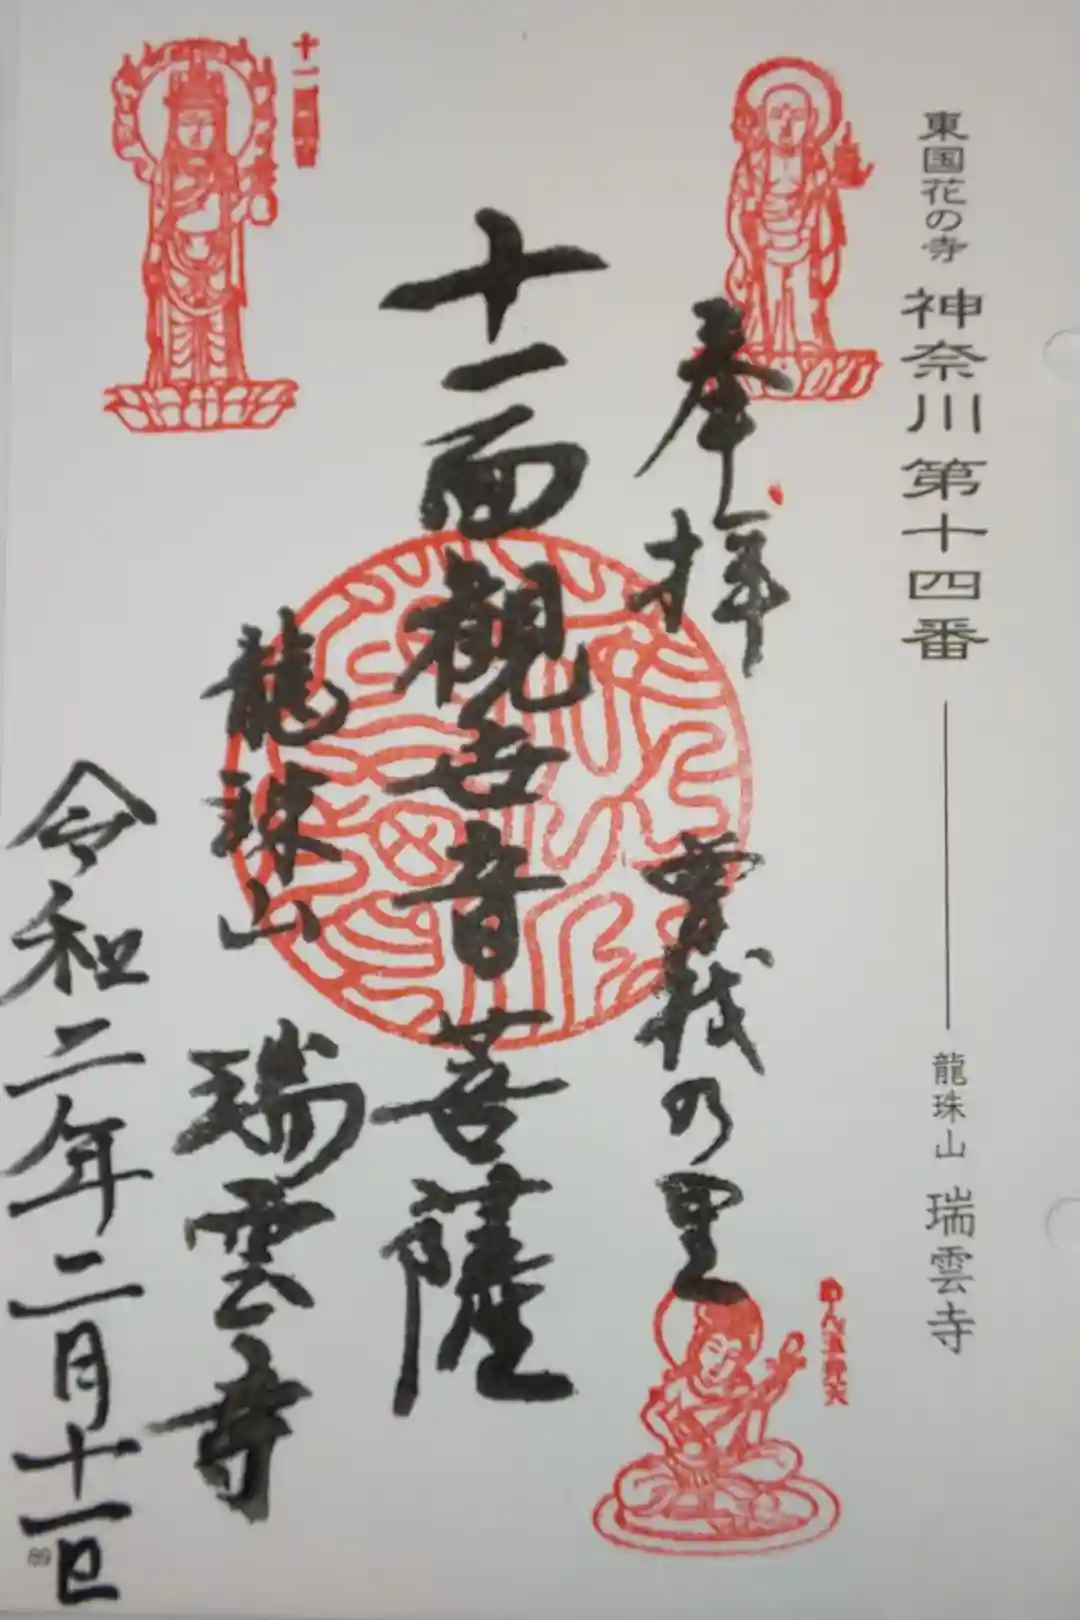 東国花の寺 神奈川第十四番 龍珠山 瑞雲寺
奉拝 曽我の里
十一面観世音菩薩
龍珠山 瑞雲寺
令和二年二月十一日
89